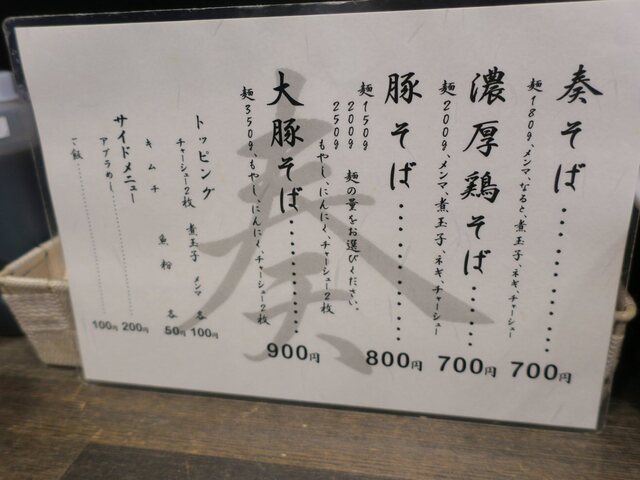 奏そば
700円
麺180g、メンマ、なると、煮玉子、ネギ、チャーシュー
濃厚鶏そば
700円
麺200g、メンマ、煮玉子、ネギ、チャーシュー
豚そば
800円
麺150g
200g
250g
麺の量をお選びください。
もやし、にんにく、チャーシュー2枚
大豚そば
900円
麺350g、もやし、にんにく、チャーシュー2枚
トッピング
チャーシュー2枚 煮玉子 メンマ 各100円
キムチ 魚粉 各50円
サイドメニュー
アブラめし 200円
ご飯 100円
奏